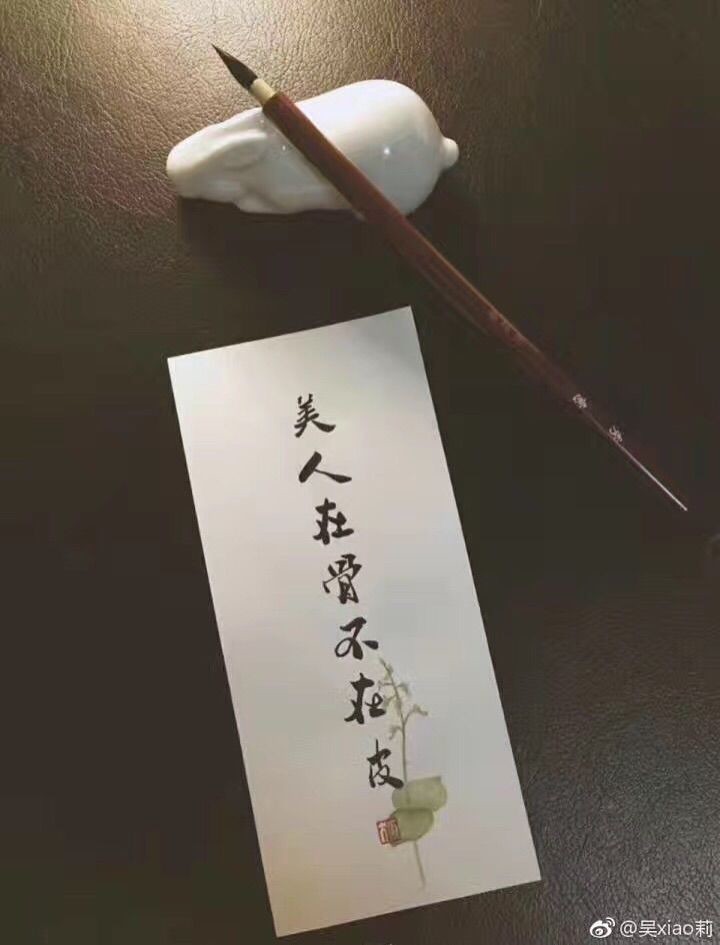 美人在骨不在皮
@吴xiao莉